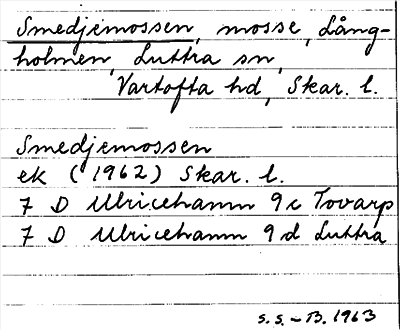 Smedjemossen, mosse, Lång-
holmen, Luttra sn,
Vartofta hd, Skar. l.
Smedjemossen
ek (1962) Skar. l.
7 D Ulricehamn 9 c Tovarp
7 D Ulricehamn 9 d Luttra
S. S. - B. 1963